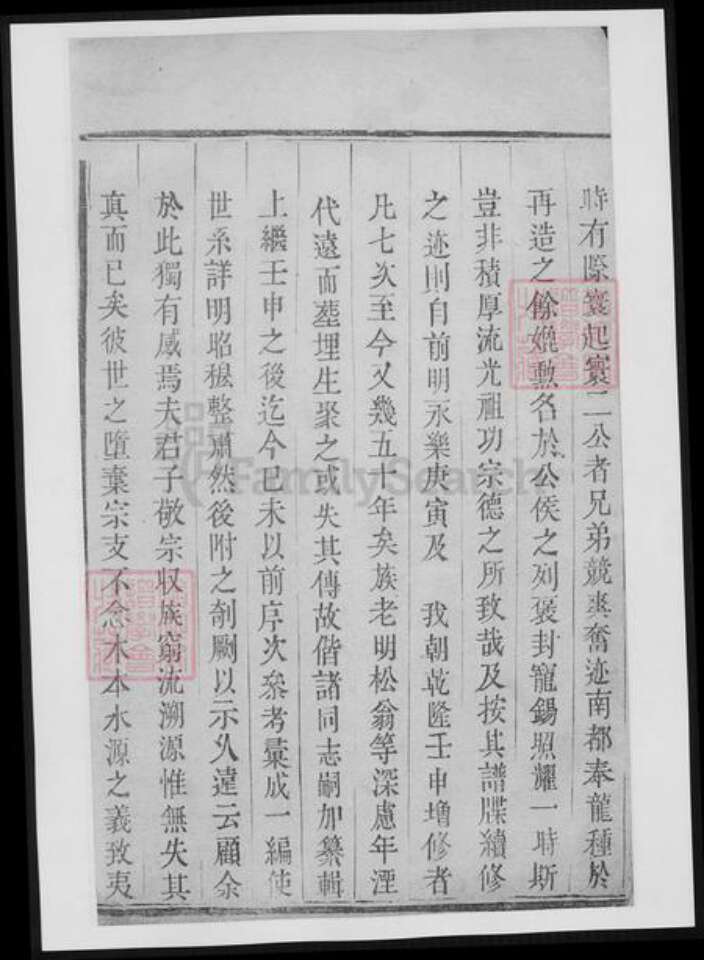 時有際寰起寰二公者兄弟競爽奮迹南都奉龍種於
再造之餘媲勳名於公侯之列褒封寵錫照耀一時斯
豈非積厚流光祖功宗德之所致哉及按其譜牒續修
之迹則自前明永樂庚寅及 我朝乾隆壬申增修者
凡七次至今又幾五十年矣族老明松翁等深慮年湮
代遠而墓埋生聚之或失其傳故偕諸同志嗣加纂輯
上繼壬申之後迄今已未以前序次叅考彙成一編使
世系詳明昭穆整肅然後附之剞劂以示久遠云顧余
於此獨有感焉夫君子敬宗収族窮流溯源惟無失其
真而已矣彼世之墮棄宗支不念木本水源之義致夷
FamilySearch